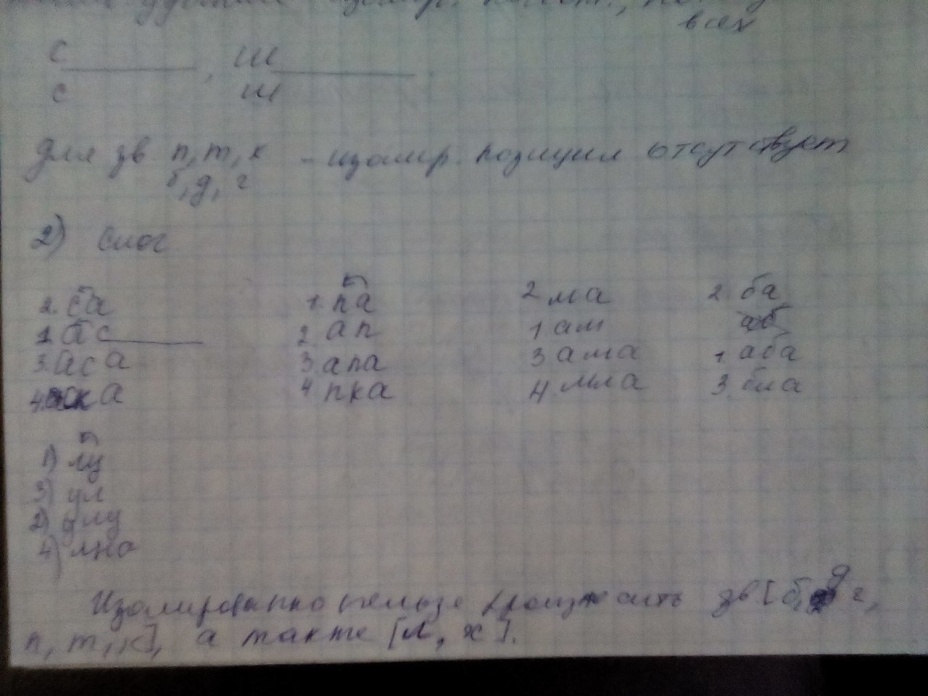 всех
с , ш
с ш
для зв п, т, к - изолир. позиция отсутствует
б, д, г
2) Слог
2. са 1. па 2 ма 2. ба
1. ас 2 ап 1 ам аб
3. аса 3. апа 3 ама 1. аба
4. ска 4 пка 4. мла 3. бла
1) лу
3) ул
2) улу
4) лно
Изолированно нельзя произносить зв [б, д, г,
п, т, к], а также [л, х].